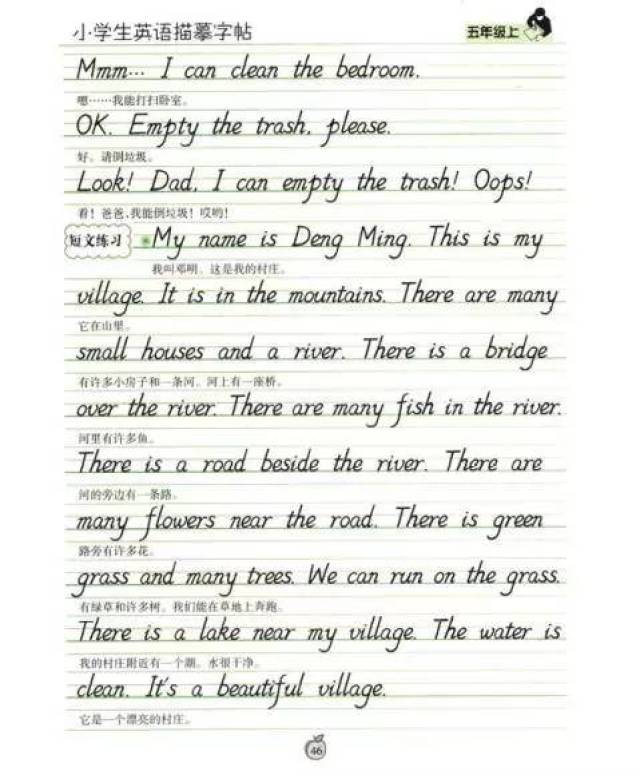 小学生英语描摹字帖
五年级上
Mmm… I can clean the bedroom.
嗯……我能打扫卧室。
OK. Empty the trash, please.
好。请倒垃圾。
Look! Dad, I can empty the trash! Oops!
看！爸爸，我能倒垃圾！哎哟！
短文练习
My name is Deng Ming. This is my
我叫邓明。这是我的村庄。
village. It is in the mountains. There are many
它在山里。
small houses and a river. There is a bridge
有许多小房子和一条河。河上有一座桥。
over the river. There are many fish in the river.
河里有许多鱼。
There is a road beside the river. There are
河的旁边有一条路。
many flowers near the road. There is green
路旁有许多花。
grass and many trees. We can run on the grass.
有绿草和许多树。我们能在草地上奔跑。
There is a lake near my village. The water is
我的村庄附近有一个湖。水很干净。
clean. It's a beautiful village.
它是一个漂亮的村庄。
46